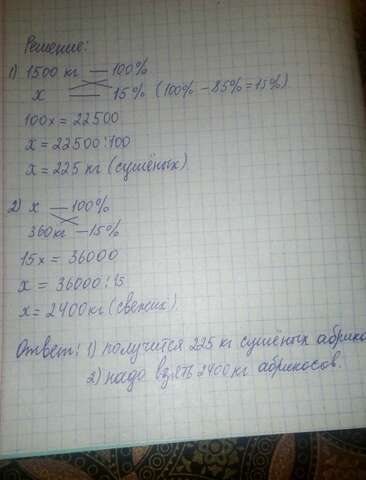 Решение:
1) 1500 кг — 100%
х — 15% (100% - 85% = 15%)
100х = 22500
х = 22500:100
х = 225 кг (сушёных)
2) х — 100%
360кг — 15%
15х = 36000
х = 36000:15
х = 2400кг (свежих)
Ответ: 1) получится 225 кг сушёных абрико
2) надо взять 2400 кг абрикосов.